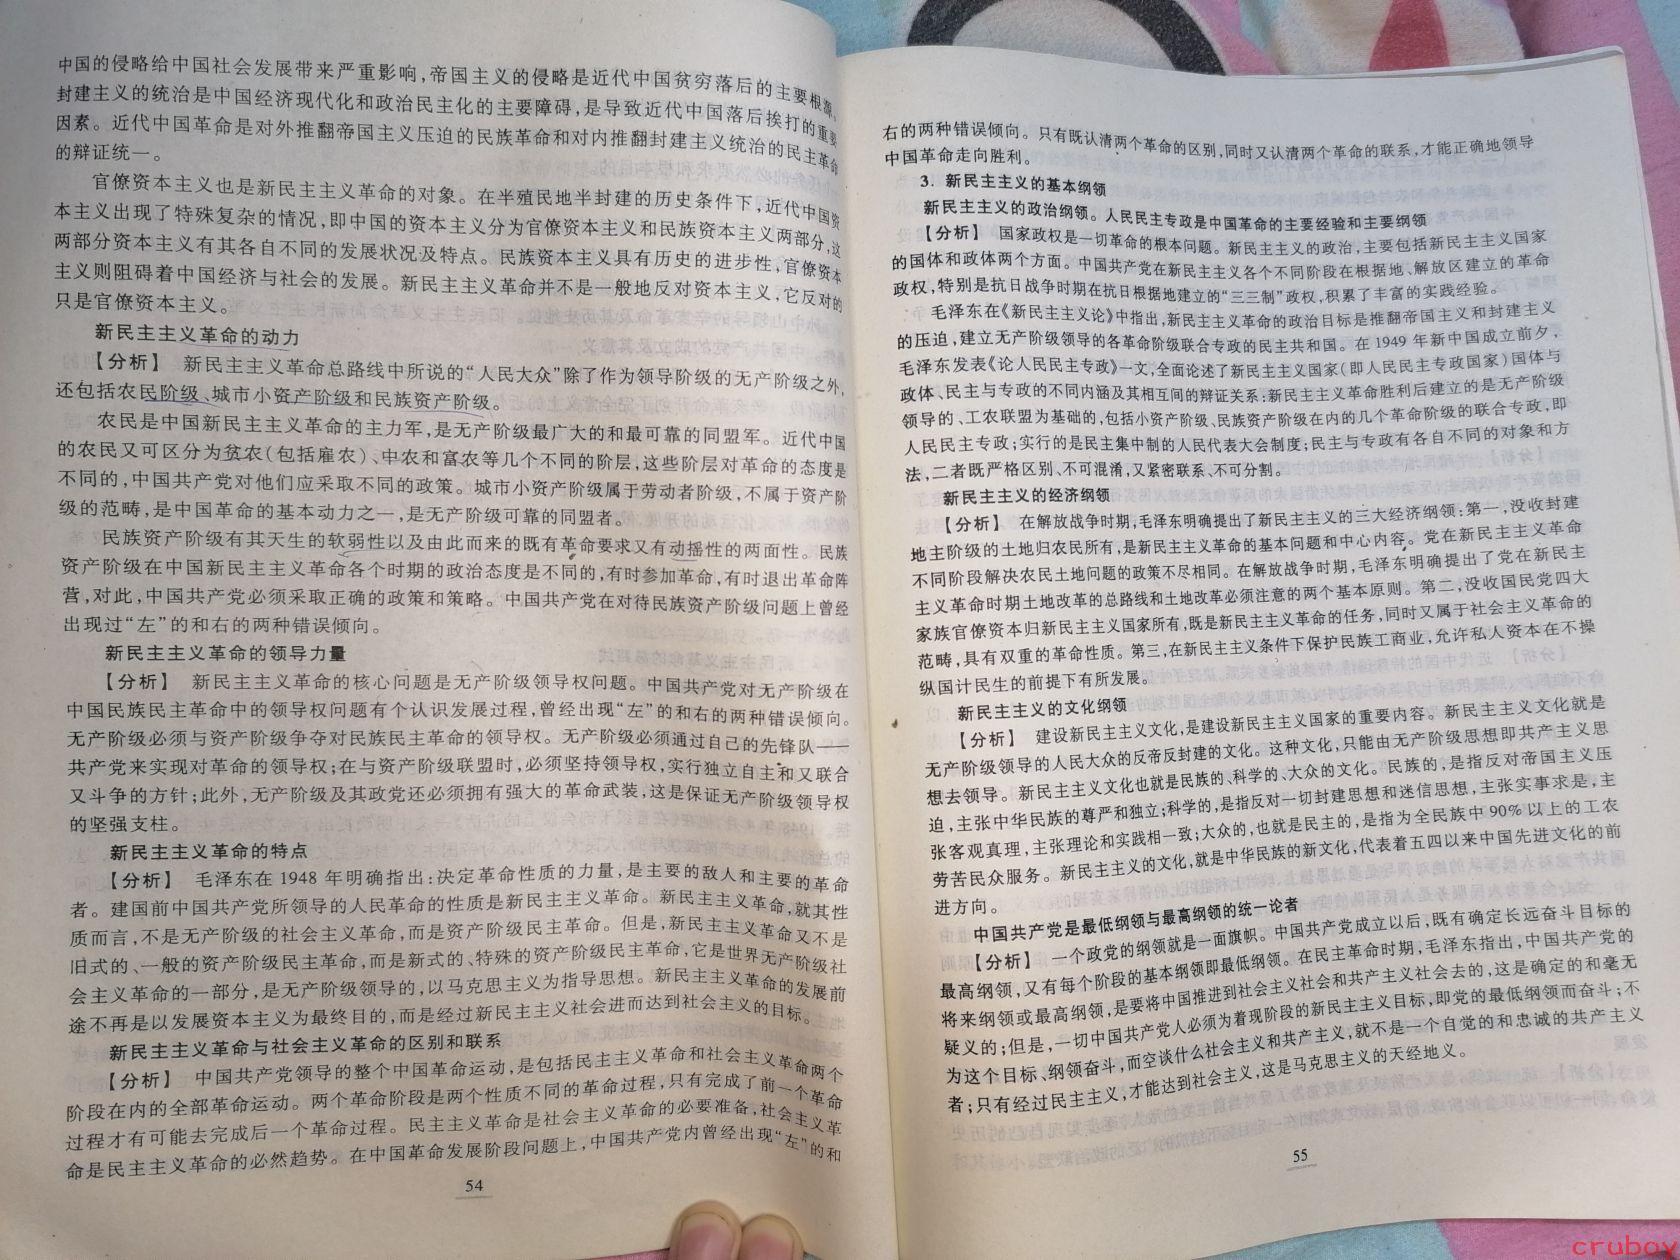 中国的侵略给中国社会发展带来严重影响,帝国主义的侵略是近代中国贫穷落后的主要根源。
封建主义的统治是中国经济现代化和政治民主化的主要障碍,是导致近代中国落后挨打的重要
因素。近代中国革命是对外推翻帝国主义压迫的民族革命和对内推翻封建主义统治的民主革命
的辩证统一。
官僚资本主义也是新民主主义革命的对象。在半殖民地半封建的历史条件下,近代中国资
本主义出现了特殊复杂的情况,即中国的资本主义分为官僚资本主义和民族资本主义两部分,这
两部分资本主义有其各自不同的发展状况及特点。民族资本主义具有历史的进步性,官僚资本
主义则阻碍着中国经济与社会的发展。新民主主义革命并不是一般地反对资本主义,它反对的
只是官僚资本主义。
新民主主义革命的动力
【分析】 新民主主义革命总路线中所说的“人民大众”除了作为领导阶级的无产阶级之外,
还包括农民阶级、城市小资产阶级和民族资产阶级。
农民是中国新民主主义革命的主力军,是无产阶级最广大的和最可靠的同盟军。近代中国
的农民又可区分为贫农(包括雇农)、中农和富农等几个不同的阶层,这些阶层对革命的态度是
不同的,中国共产党对他们应采取不同的政策。城市小资产阶级属于劳动者阶级,不属于资产阶
级的范畴,是中国革命的基本动力之一,是无产阶级可靠的同盟者。
民族资产阶级有其天生的软弱性以及由此而来的既有革命要求又有动摇性的两面性。民族
资产阶级在中国新民主主义革命各个时期的政治态度是不同的,有时参加革命,有时退出革命阵
营,对此,中国共产党必须采取正确的政策和策略。中国共产党在对待民族资产阶级问题上曾经
出现过“左”的和右的两种错误倾向。
新民主主义革命的领导力量
【分析】 新民主主义革命的核心问题是无产阶级领导权问题。中国共产党对无产阶级在
中国民族民主革命中的领导权问题有个认识发展过程,曾经出现“左”的和右的两种错误倾向。
无产阶级必须与资产阶级争夺对民族民主革命的领导权。无产阶级必须通过自己的先锋队——
共产党来实现对革命的领导权;在与资产阶级联盟时,必须坚持领导权,实行独立自主和又联合
又斗争的方针;此外,无产阶级及其政党还必须拥有强大的革命武装,这是保证无产阶级领导权
的坚强支柱。
新民主主义革命的特点
【分析】 毛泽东在 1948 年明确指出:决定革命性质的力量,是主要的敌人和主要的革命
者。建国前中国共产党所领导的人民革命的性质是新民主主义革命。新民主主义革命,就其性
质而言,不是无产阶级的社会主义革命,而是资产阶级民主革命。但是,新民主主义革命又不是
旧式的、一般的资产阶级民主革命,而是新式的、特殊的资产阶级民主革命,它是世界无产阶级社
会主义革命的一部分,是无产阶级领导的,以马克思主义为指导思想。新民主主义革命的发展前
途不再是以发展资本主义为最终目的,而是经过新民主主义社会进而达到社会主义的目标。
新民主主义革命与社会主义革命的区别和联系
【分析】 中国共产党领导的整个中国革命运动,是包括民主主义革命和社会主义革命两个
阶段在内的全部革命运动。两个革命阶段是两个性质不同的革命过程,只有完成了前一个革命
过程才有可能去完成后一个革命过程。民主主义革命是社会主义革命的必要准备,社会主义革
命是民主主义革命的必然趋势。在中国革命发展阶段问题上,中国共产党内曾经出现“左”的和
54
右的两种错误倾向。只有既认清两个革命的区别,同时又认清两个革命的联系,才能正确地领导
中国革命走向胜利。
3. 新民主主义的基本纲领
新民主主义的政治纲领。人民民主专政是中国革命的主要经验和主要纲领
【分析】 国家政权是一切革命的根本问题。新民主主义的政治,主要包括新民主主义国家
的国体和政体两个方面。中国共产党在新民主主义各个不同阶段在根据地、解放区建立的革命
政权,特别是抗日战争时期在抗日根据地建立的“三三制”政权,积累了丰富的实践经验。
毛泽东在《新民主主义论》中指出,新民主主义革命的政治目标是推翻帝国主义和封建主义
的压迫,建立无产阶级领导的各革命阶级联合专政的民主共和国。在 1949 年新中国成立前夕,
毛泽东发表《论人民民主专政》一文,全面论述了新民主主义国家(即人民民主专政国家)国体与
政体、民主与专政的不同内涵及其相互间的辩证关系:新民主主义革命胜利后建立的是无产阶级
领导的、工农联盟为基础的,包括小资产阶级、民族资产阶级在内的几个革命阶级的联合专政,即
人民民主专政;实行的是民主集中制的人民代表大会制度;民主与专政有各自不同的对象和方
法,二者既严格区别、不可混淆,又紧密联系、不可分割。
新民主主义的经济纲领
【分析】 在解放战争时期,毛泽东明确提出了新民主主义的三大经济纲领:第一,没收封建
地主阶级的土地归农民所有,是新民主主义革命的基本问题和中心内容。党在新民主主义革命
不同阶段解决农民土地问题的政策不尽相同。在解放战争时期,毛泽东明确提出了党在新民主
主义革命时期土地改革的总路线和土地改革必须注意的两个基本原则。第二,没收国民党四大
家族官僚资本归新民主主义国家所有,既是新民主主义革命的任务,同时又属于社会主义革命的
范畴,具有双重的革命性质。第三,在新民主主义条件下保护民族工商业,允许私人资本在不操
纵国计民生的前提下有所发展。
新民主主义的文化纲领
【分析】 建设新民主主义文化,是建设新民主主义国家的重要内容。新民主主义文化就是
无产阶级领导的人民大众的反帝反封建的文化。这种文化,只能由无产阶级思想即共产主义思
想去领导。新民主主义文化也就是民族的、科学的、大众的文化。民族的,是指反对帝国主义压
迫,主张中华民族的尊严和独立;科学的,是指反对一切封建思想和迷信思想,主张实事求是,主
张客观真理,主张理论和实践相一致;大众的,也就是民主的,是指为全民族中 90%以上的工农
劳苦民众服务。新民主主义的文化,就是中华民族的新文化,代表着五四以来中国先进文化的前
进方向。
中国共产党是最低纲领与最高纲领的统一论者
【分析】 一个政党的纲领就是一面旗帜。中国共产党成立以后,既有确定长远奋斗目标的
最高纲领,又有每个阶段的基本纲领即最低纲领。在民主革命时期,毛泽东指出,中国共产党的
将来纲领或最高纲领,是要将中国推进到社会主义社会和共产主义社会去的,这是确定的和毫无
疑义的;但是,一切中国共产党人必须为着现阶段的新民主主义目标,即党的最低纲领而奋斗;不
为这个目标、纲领奋斗,而空谈什么社会主义和共产主义,就不是一个自觉的和忠诚的共产主义
者;只有经过民主主义,才能达到社会主义,这是马克思主义的天经地义。
55
cruboy